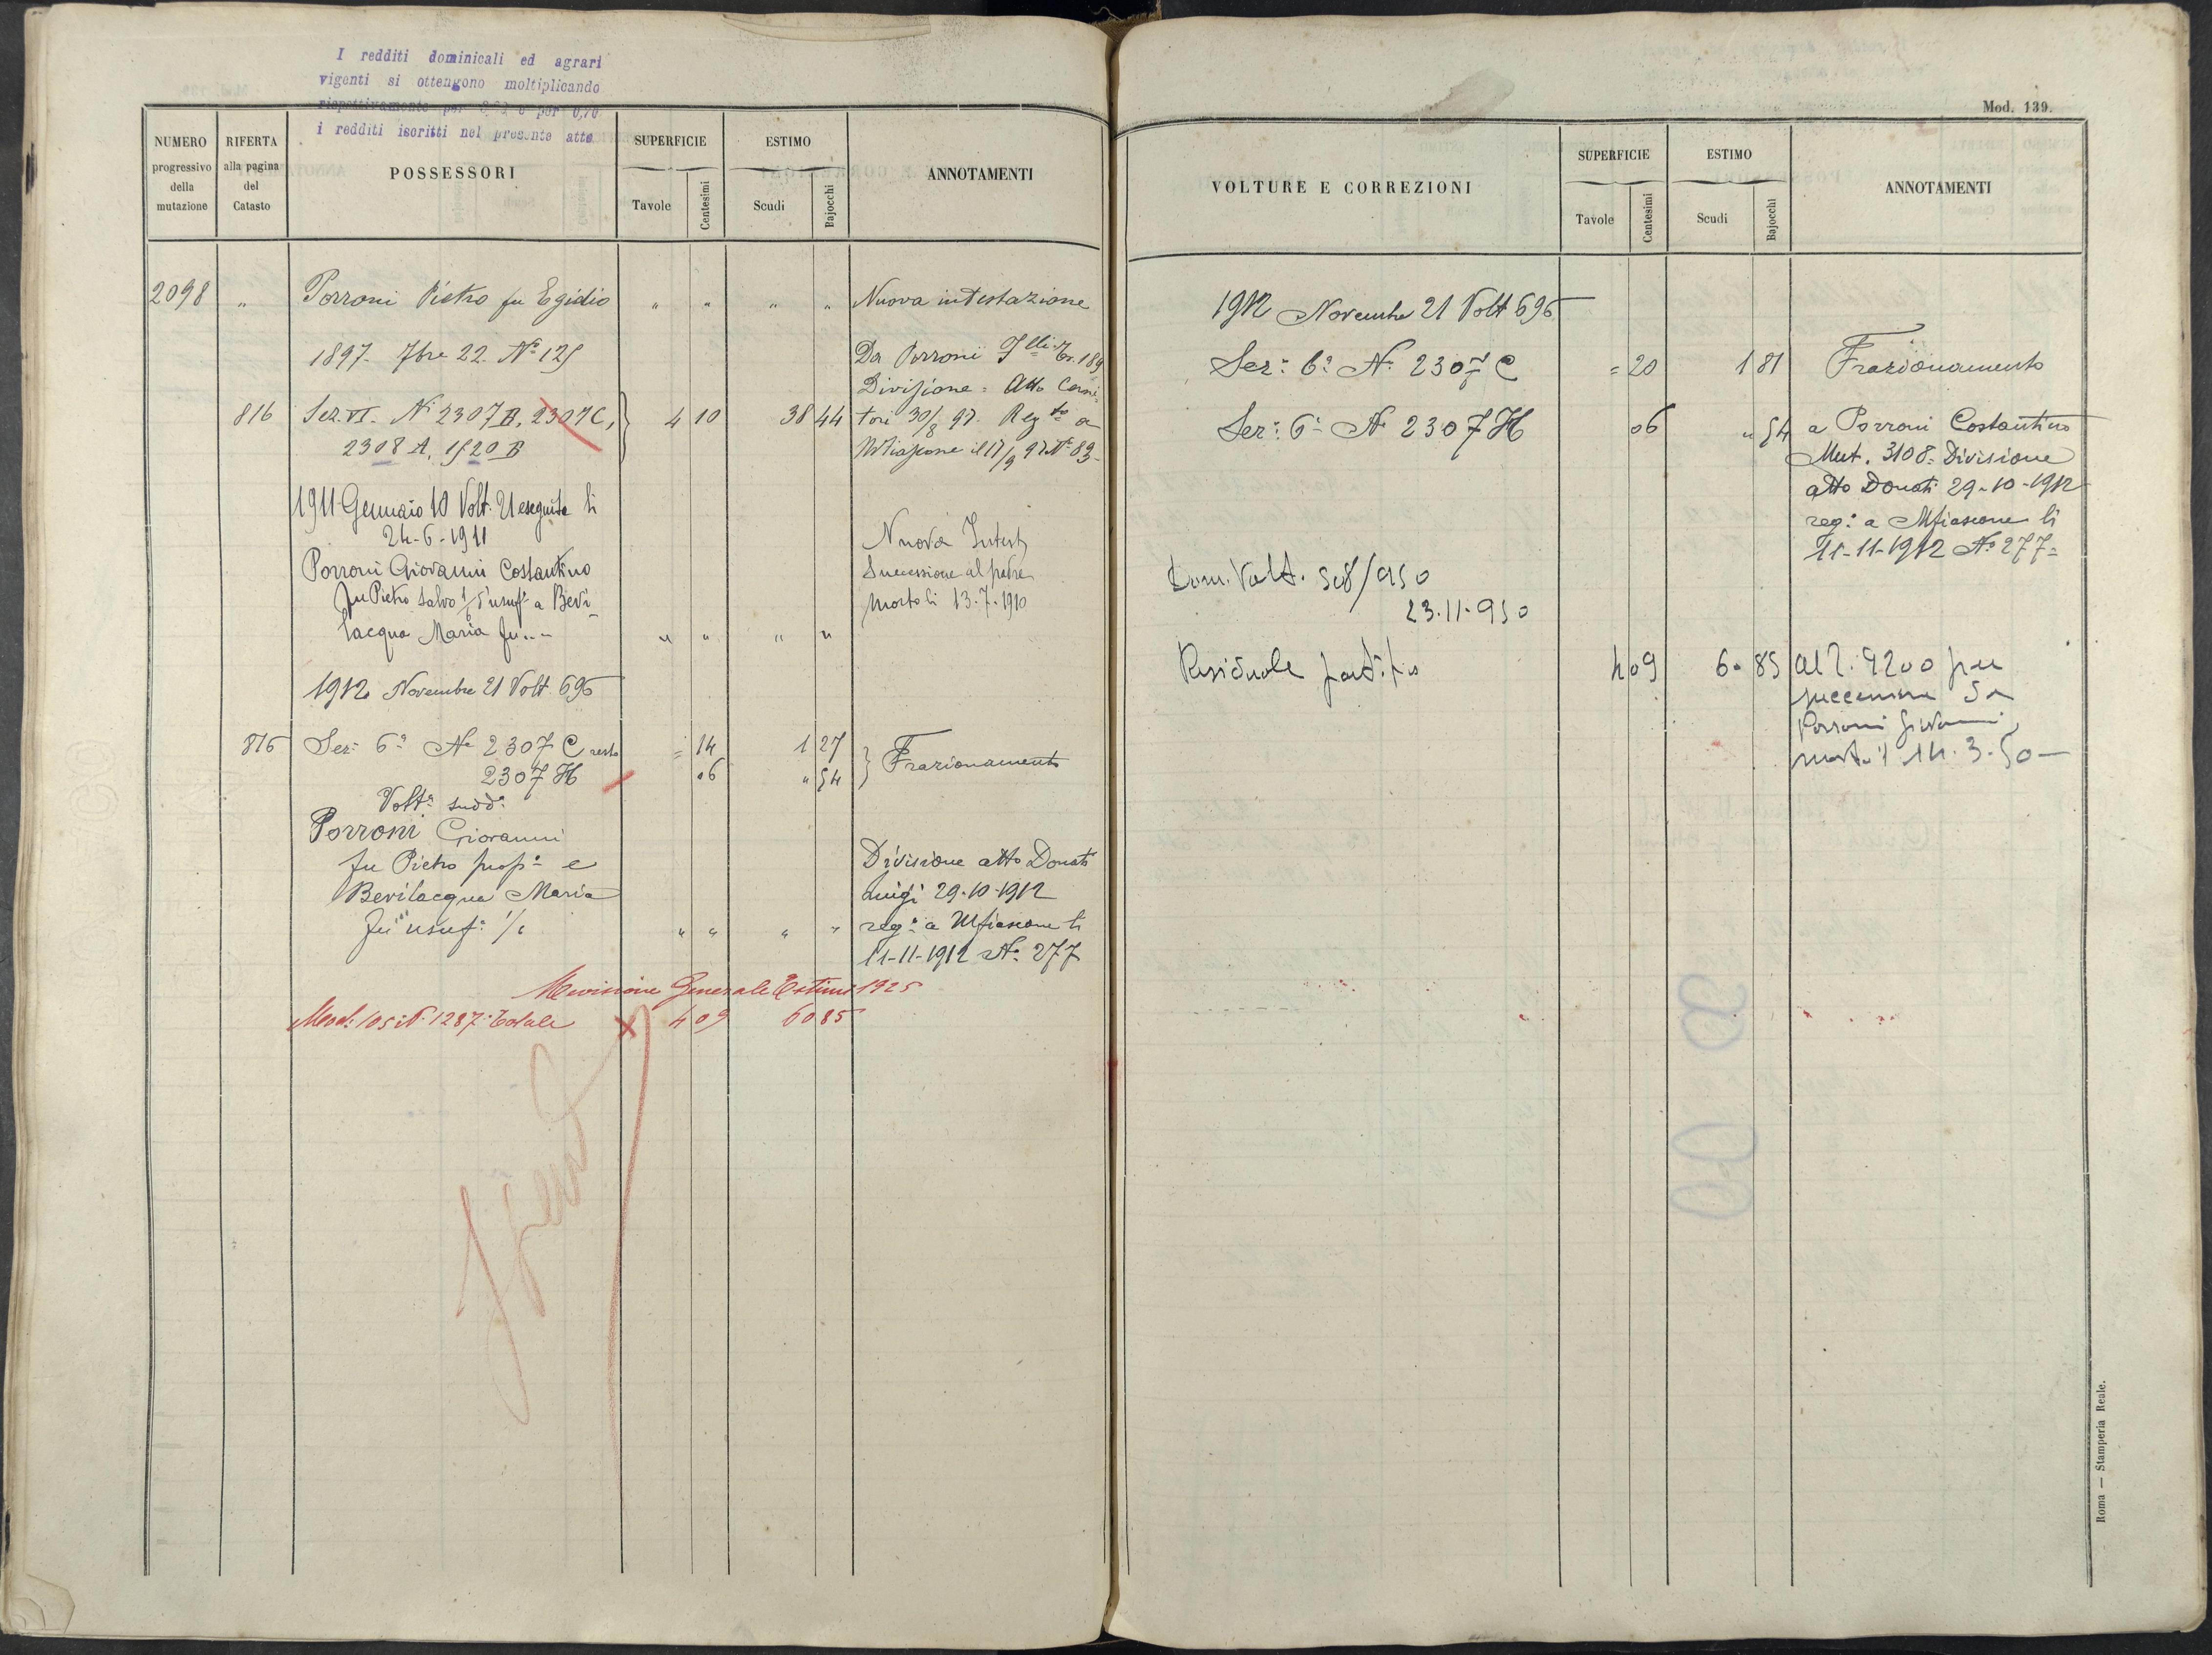 I redditi dominicali ed agrari
vigenti si ottengono moltiplicando
rispettivamente per e per 0,70
i redditi iscritti nel presente atto
NUMERO
progressivo
della
mutazione
RIFERTA
alla pagina
del
Catasto
POSSESSORI
SUPERFICIE
Tavole
Centesimi
ESTIMO
Scudi
Bajocchi
ANNOTAMENTI
2098 " Porroni Pietro fu Egidio " " " " Nuova intestazione
1897. 7bre 22. N° 125
Da Porroni Flli Tr. 189
Divisione = Atto
816 Sez. VI. N° 2307 B, 2307 C, 4 10 38 44 tori 30/8 97. Regto a
2308 A, 1520 B
Mtiascone il 17/9 97 N° 83-
1911 Gennaio 10 Volt. U eseguita li
24-6-1911
Porroni Giovanni Costantino
fu Pietro salvo usuf° a Bevi-
lacqua Maria fu... " " " "
Nuova Intest
Successione al padre
morto li 13.7.1910
1912 Novembre 21 Volt. 696
816 Sez: 6ª N° 2307 C resto = 14 1 27
2307 H 06 " 54
Frazionamento
Volta sudda
Porroni Giovanni
fu Pietro propº e
Bevilacqua Maria
fu " usuf: " " " "
Divisione atto Donati
Luigi 29-10-1912
rega a Mfiascone li
11-11-1912 N° 277
Revisione Generale Estimi 1925
Mod: 105 N. 1287: Totale x 4 09 60 85
Mod. 139.
VOLTURE E CORREZIONI
SUPERFICIE
Tavole
Centesimi
ESTIMO
Scudi
Bajocchi
ANNOTAMENTI
1912 Novembre 21 Volt 696
Sez: 6ª N° 2307 C = 20 1 81 Frazionamento
Sez: 6ª N° 2307 H 06 " 54 a Porroni Costantino
Mut. 3108= Divisione
atto Donati 29-10-1912
reg: a Mfiascone li
11-11-1912 N° 277=
Dom. Volt. 508/950
23.11.950
Residuale partita 4 09 60 85 al 9200 per
successione da
Porroni Giovanni,
morto il 14.3.50 —
Roma — Stamperia Reale.